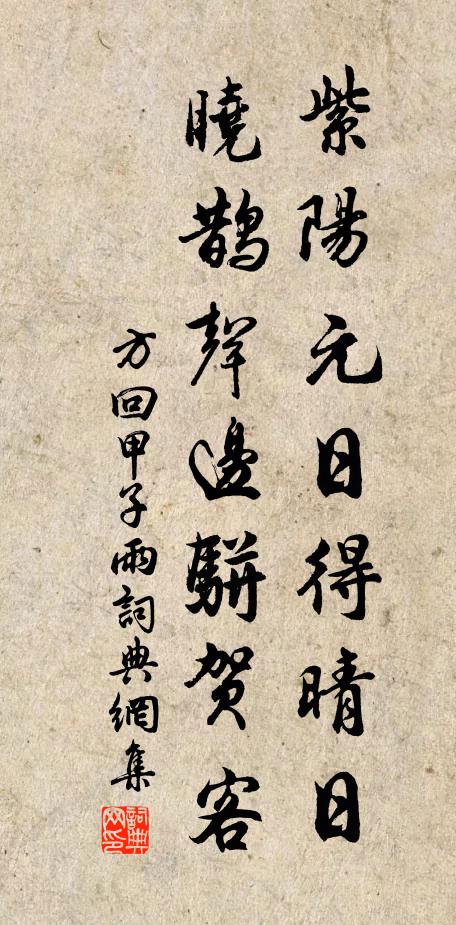 紫陽元日得晴日
曉鵲聲邊駢賀客
方回甲子雨詞典網集
詞典網印